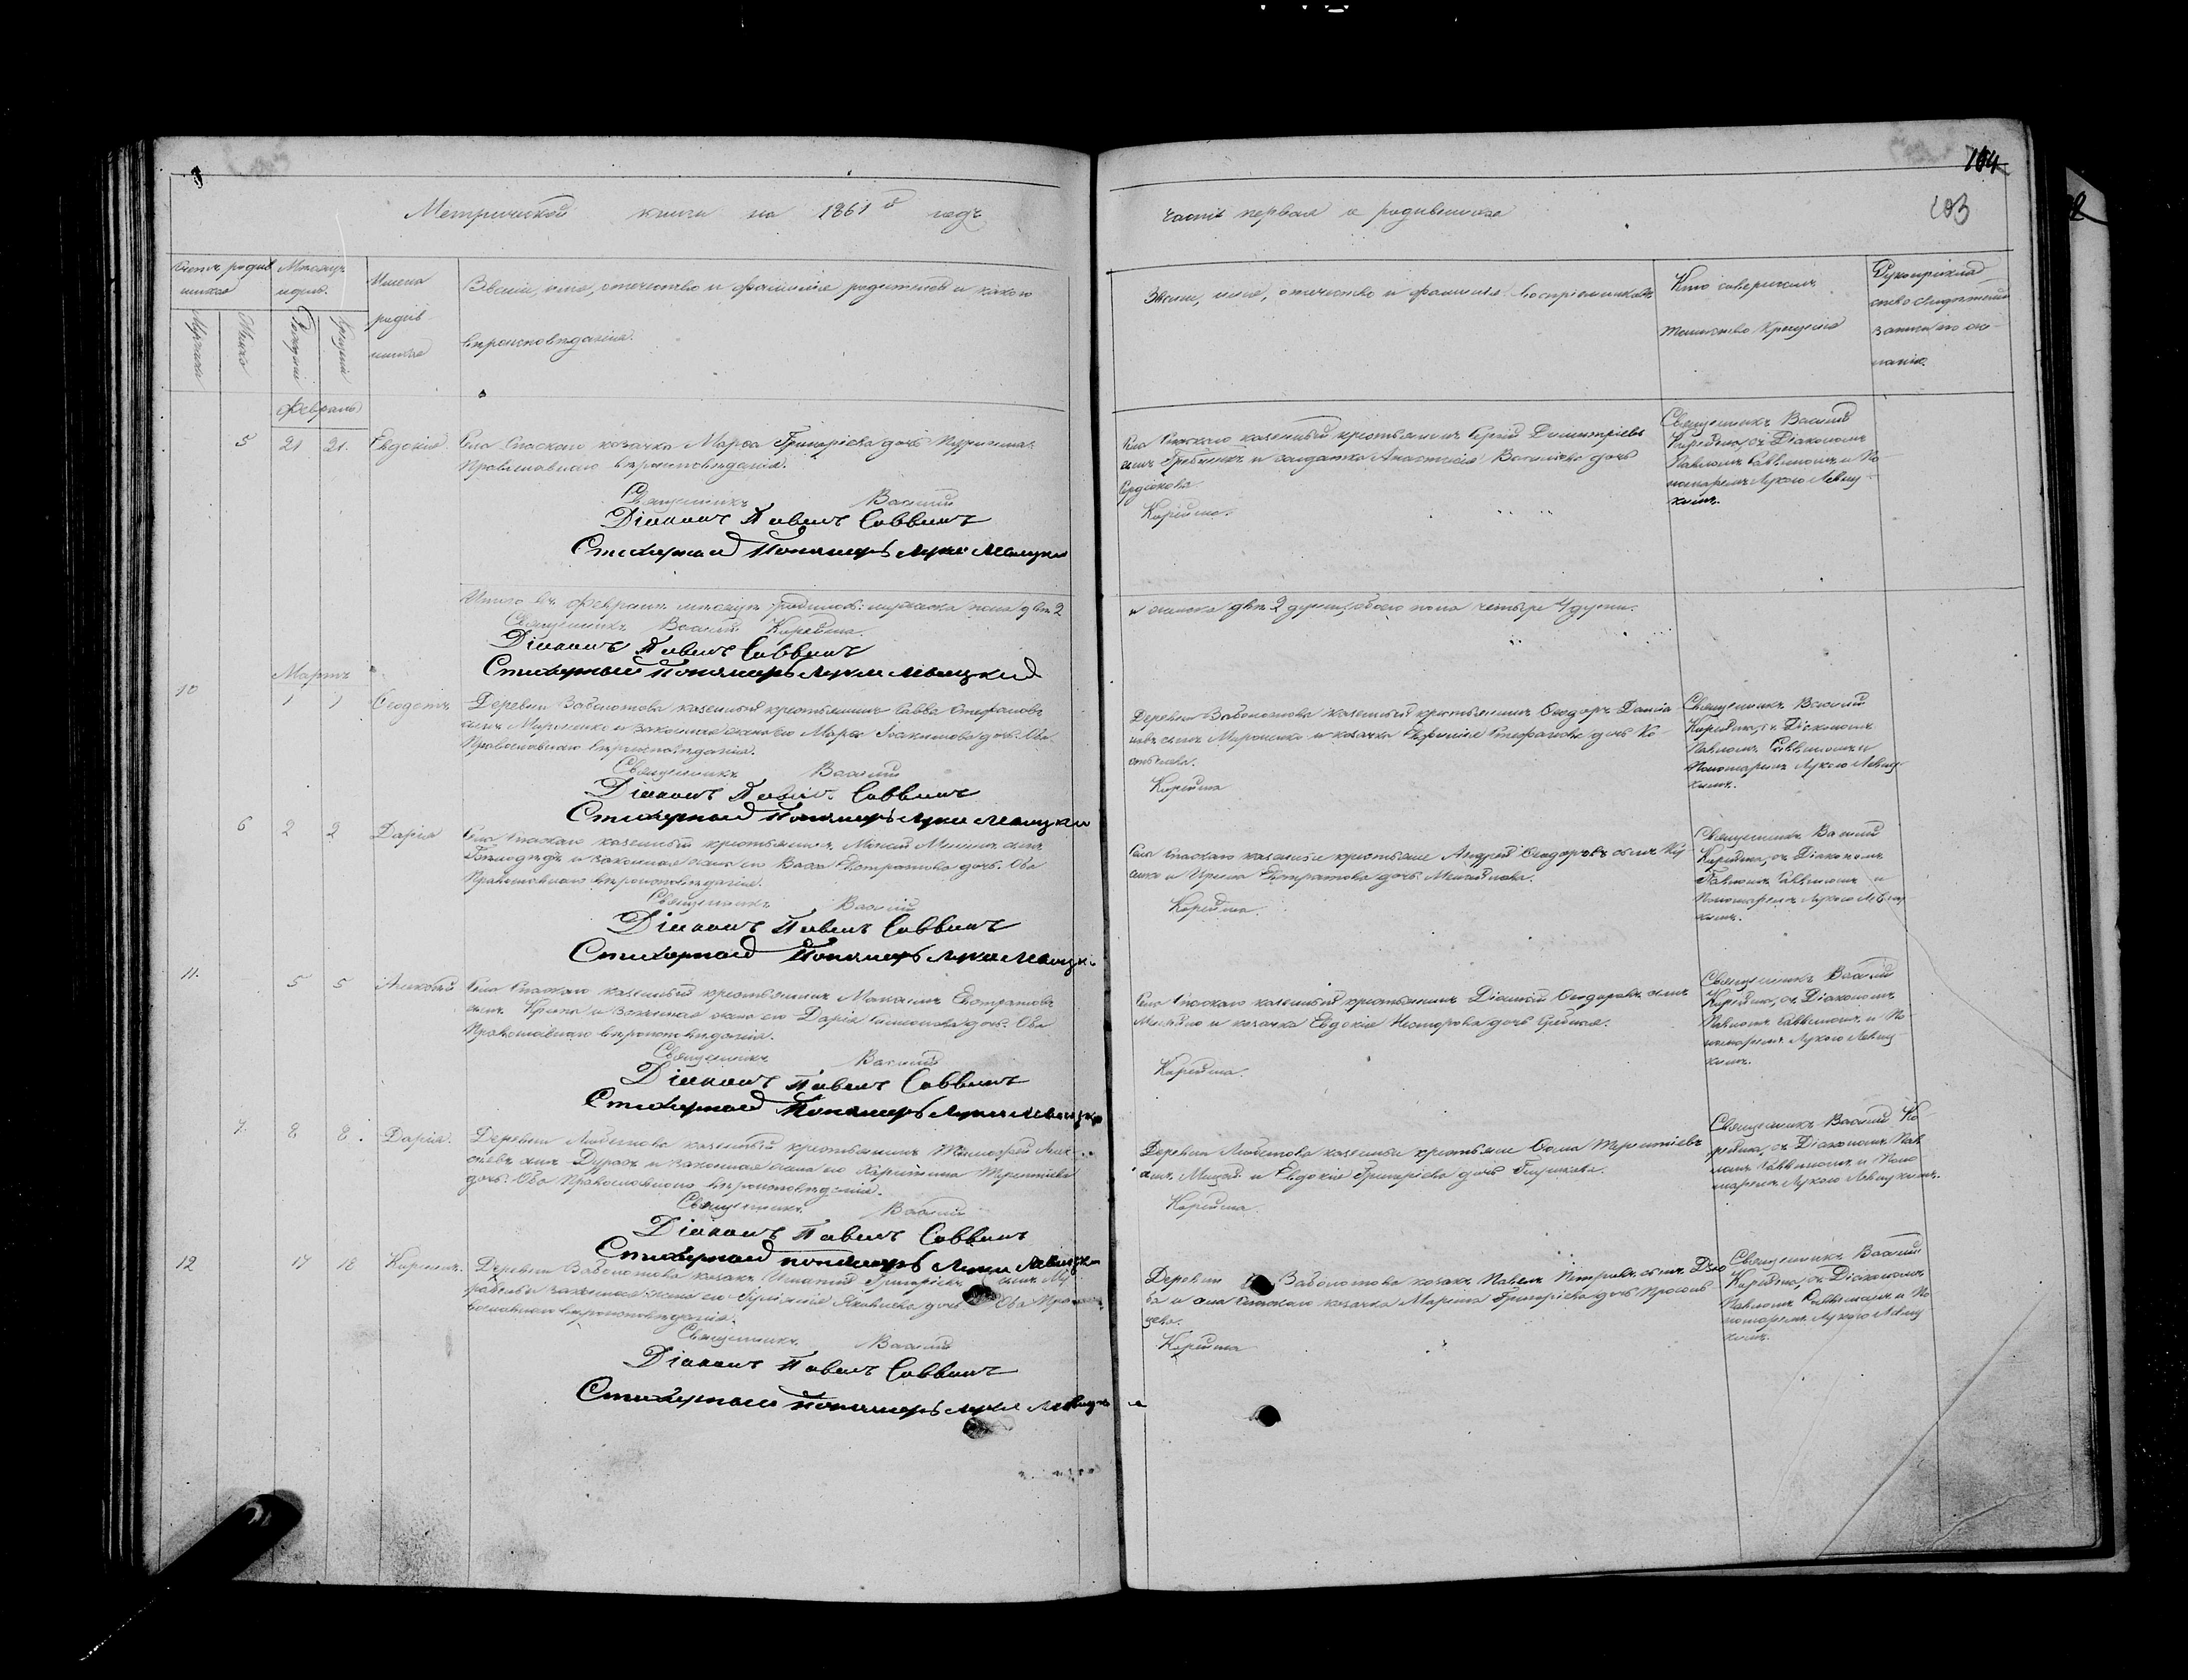 104
103
Метрической книги на 1861й годъ
часть первая о родившихся
Счетъ родив
шихся
Мѣсяцъ
и день.
Имена
родив
шихся
Званіе, имя, отечество и фамилія родителей и какого
вѣроисповѣданія.
Мужска
Женска
Рожденія
Крещенія
Званіе, имя, отечество и фамилія воспріемниковъ
Кто совершалъ
таинство Крещенія
Рукоприклад
ство свидѣтелей
записи по же
ланію.
Февраль
5 21 21. Евдокія
Села Спаскаго козачка Марѳа Григоріева дочь
Православнаго вѣроисповѣданія.
Священникъ Василій
Діаконъ Павелъ Саввинъ
Стихарный Пономарь Лука Левицкій
Села Спаскаго казенный крестьянинъ Сергій Димитріевъ
сынъ Гребеникъ и солдатка Анастасія Васильева дочь
Сердюкова.
Корейша.
Священникъ Василій
Корейша, съ Діакономъ
Павломъ Саввиномъ и По
номаремъ Лукою Левиц
кимъ.
Итого въ Февралѣ мѣсяцѣ родилось: мужеска пола двѣ 2
Священникъ Василій Корейша.
Діаконъ Павелъ Саввинъ
Стихарный Пономарь Лука Левицкій
и женска двѣ 2 души, обоего пола четыре 4 души.
Мартъ
10 1 1 Ѳеодотъ
Деревни Заболотова казенный крестьянинъ Савва Стефановъ
сынъ Мироненко и законная жена его Марѳа Іоакимова дочь. Оба
Православнаго вѣроисповѣданія.
Священникъ Василій
Діаконъ Павелъ Саввинъ
Стихарный Пономарь Лука Левицкій
Деревни Заболотова казенный крестьянинъ Ѳеодоръ Даніи
ловъ сынъ Мироненко и козачка Стефанова дочь Ко
Корейша
Священникъ Василій
Корейша, съ Діакономъ
Павломъ Саввиномъ и
Пономаремъ Лукою Левиц
кимъ.
6 2 2 Дарія
Села Спаскаго казенный крестьянинъ сынъ
и законная жена его Васса дочь. Оба
Православнаго вѣроисповѣданія.
Священникъ Василій
Діаконъ Павелъ Саввинъ
Стихарный Пономарь Лука Левицкі
Села Спаскаго казенные крестьяне Андрей Ѳеодоровъ сынъ
и Ирина дочь
Корейша.
Священникъ Василій
Корейша, съ Діакономъ
Павломъ Саввиномъ и
Пономаремъ Лукою Левиц
кимъ.
11. 5 5 Алексѣй
Села Спаскаго казенный крестьянинъ Максимъ
сынъ и законная жена его Дарія Симонова дочь. Оба
Православнаго вѣроисповѣданія.
Священникъ Василій
Діаконъ Павелъ Саввинъ
Стихарный Пономарь Лука Левицкій
Села Спаскаго казенный крестьянинъ Ѳеодоровъ сынъ
и козачка Евдокія Несторова дочь
Корейша.
Священникъ Василій
Корейша, съ Діакономъ
Павломъ Саввиномъ и По
номаремъ Лукою Левиц
кимъ.
7. 8 8. Дарія.
Деревни казенный крестьянинъ Тимоѳей Алек
сѣевъ сынъ и законная жена его Харитина Терентіева
дочь. Оба Православнаго вѣроисповѣданія.
Священникъ Василій
Діаконъ Павелъ Саввинъ
Стихарный пономарь Лука Левицкій
Деревни казенные крестьяне Ѳома Терентіевъ
сынъ и Евдокія Григоріева дочь
Корейша.
Священникъ Василій Ко
рейша, съ Діакономъ Пав
ломъ Саввиномъ и Поно
маремъ Лукою Левицкимъ.
12 17 18 Кириллъ.
Деревни Заболотова козакъ Игнатій Григоріевъ сынъ
и законная жена его Яковлева дочь Оба Пра
вославнаго вѣроисповѣданія.
Священникъ Василій
Діаконъ Павелъ Саввинъ
Стихарный пономарь Лука Левицкій
Деревни Заболотова козакъ Павелъ Петровъ сынъ
и села Спаскаго козачка Марина Григоріева дочь
Корейша
Священникъ Василій
Корейша, съ Діакономъ
Павломъ Саввиномъ и По
номаремъ Лукою Левиц
кимъ.